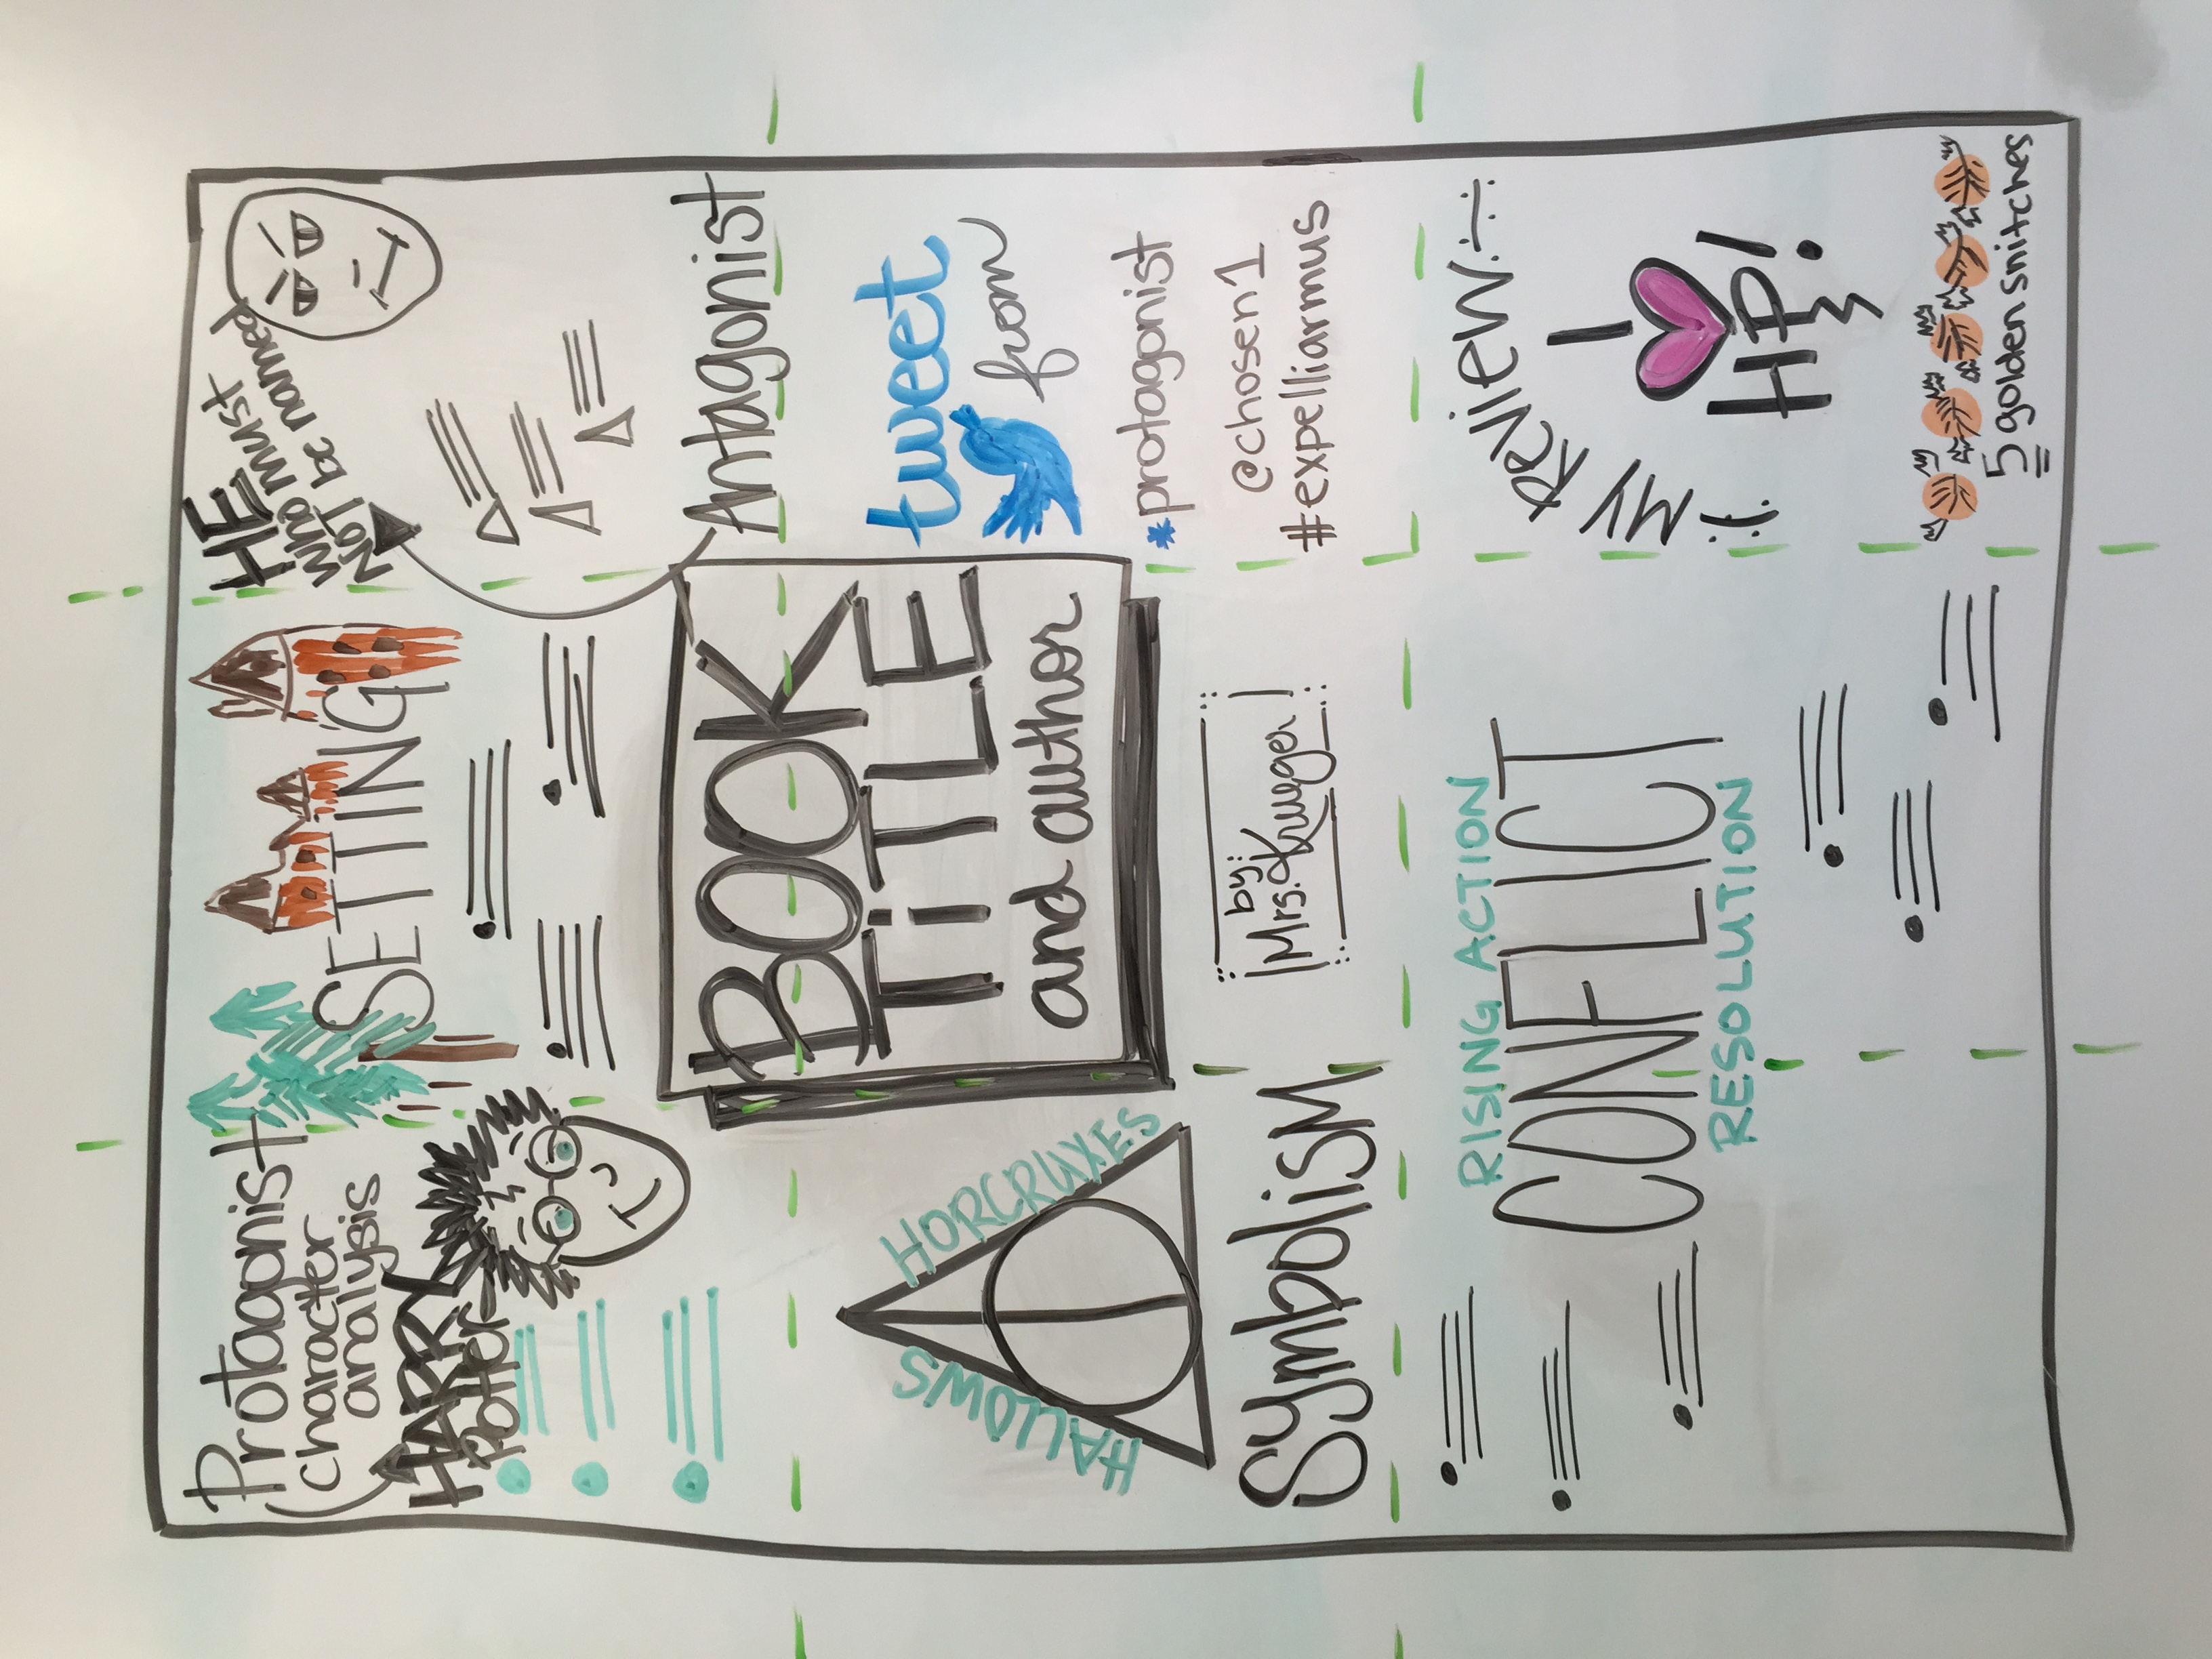 Protagonist
character
analysis
HARRY
Potter
SETTING
HE
who must
NOT be named
Antagonist
HALLOWS
HORCRUXES
Symbolism
BOOK
TiTLE
and author
by:
Mrs. Kruger
tweet
from
*protagonist
@chosen1
#expelliarmus
RISING ACTION
CONFLICT
RESOLUTION
MY ReVIEW:
I
HP!
5 golden snitches